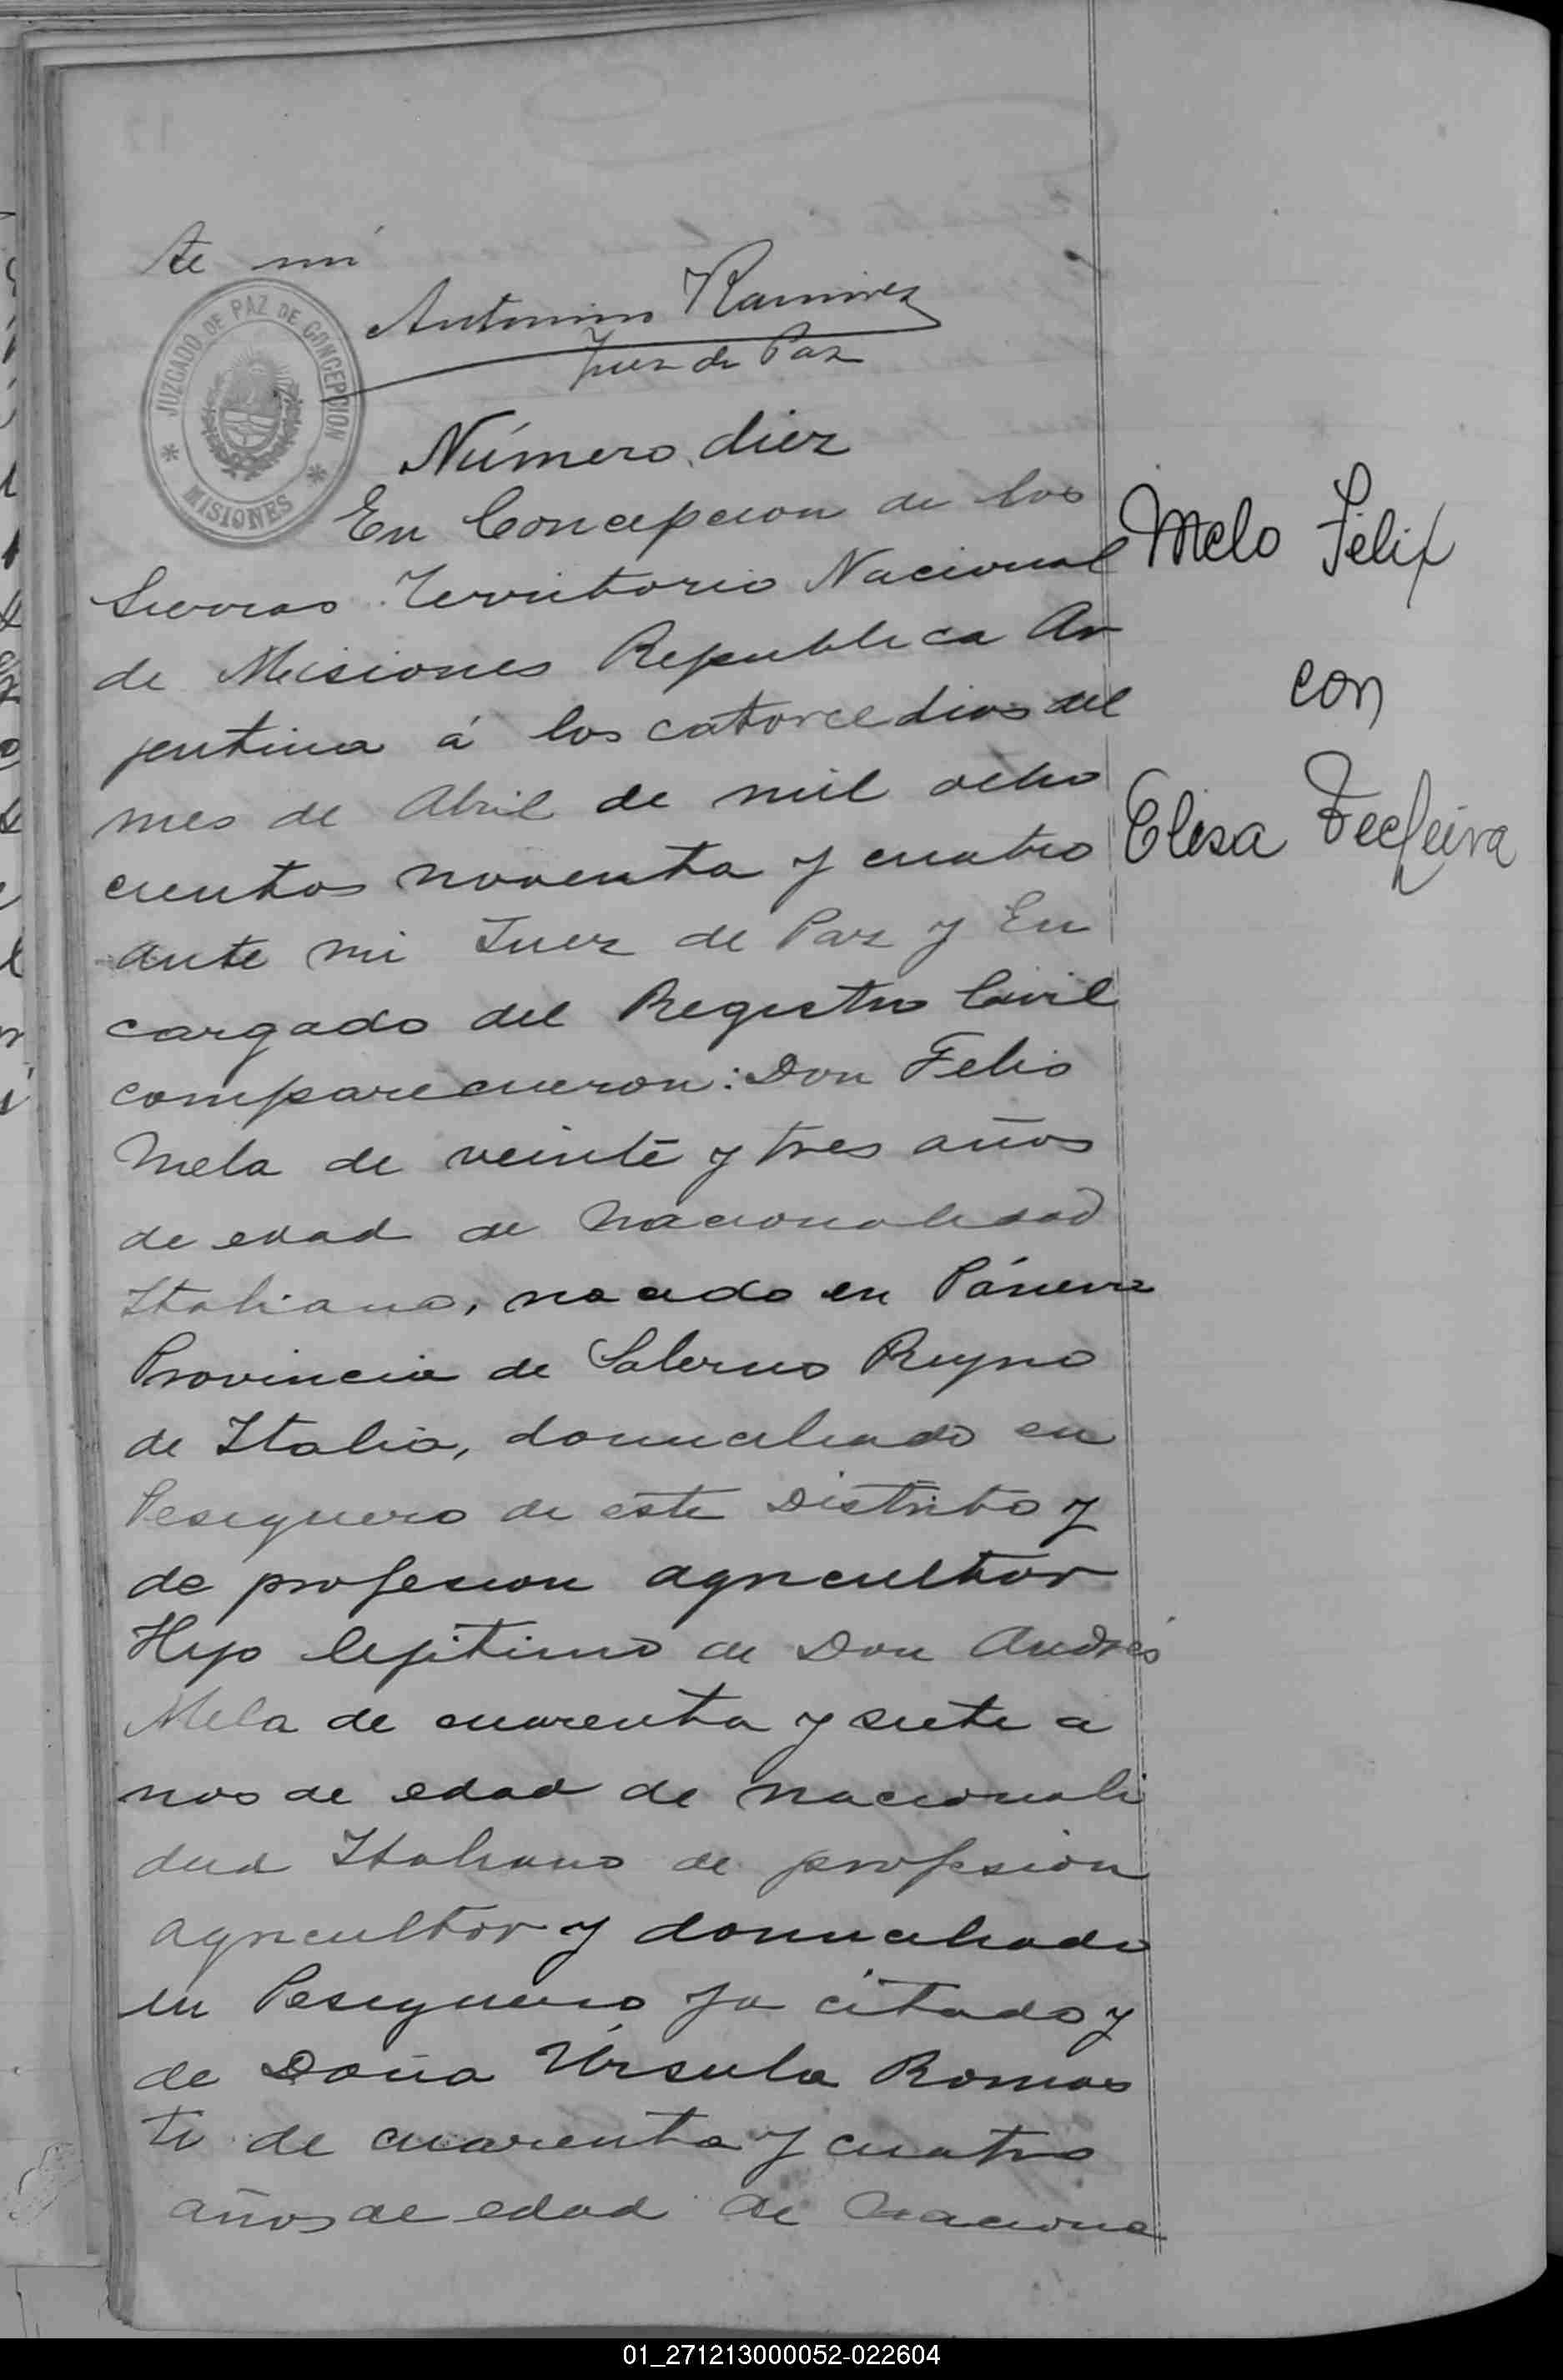 te mi
Antonino Ramirez
Juez de Paz
JUZGADO DE PAZ DE CONCEPCION
* MISIONES *
Número diez
En Concepcion de las
Sierras Territorio Nacional
de Misiones Republica Ar
jentina á los catorce dias del
mes de Abril de mil ocho
cientos noventa y cuatro
ante mi Juez de Paz y En
cargado del Registro Civil
comparecieron: Don Felis
Mela de veinte y tres años
de edad de nacionalidad
Italiano, nacido en
Provincia de Salerno Reyno
de Italia, domiciliado en
Pesiguero de este Distrito y
de profesion agricultor
Hijo lejitimo de Don Andrés
Mela de cuarenta y siete a
nos de edad de nacionali
dad Italiano de profesion
agricultor y domiciliado
en Pesiguero ya citado y
de Doña Úrsula Romas
ti de cuarenta y cuatro
años de edad de naciona
Melo Félix
con
Elisa
01_271213000052-022604